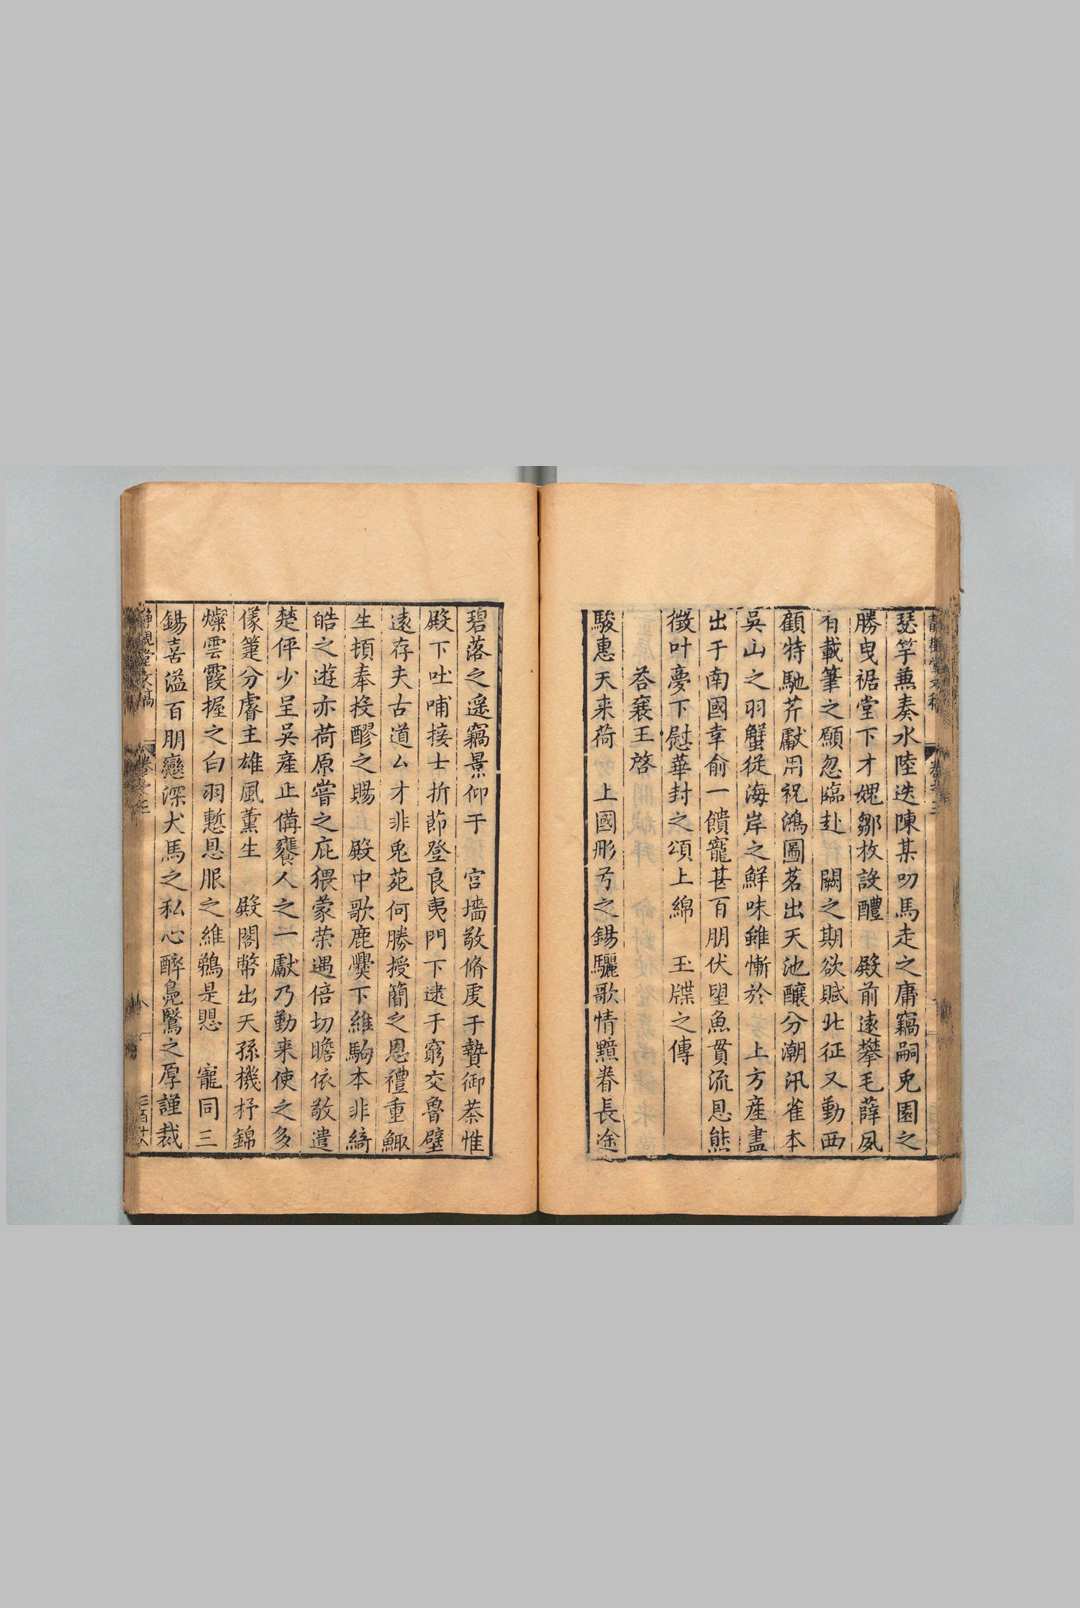 瑟竽兼奏水陸迭陳某叨馬走之庸竊嗣兎園之
勝曳裾堂下才媿鄒枚設醴 殿前遠攀毛薛夙
有載筆之願忽臨赴 闕之期欲賦北征又勤西
顧特馳芹獻用祝鴻圖茗出天池釀分潮汛雀本
吳山之羽蟹從海岸之鮮味雖慚於 上方產盡
出于南國幸俞一饋寵甚百朋伏朢魚貫流恩熊
徵叶夢下慰華封之頌上綿 玉牒之傳
荅襄王啓
駿惠天来荷 上國彤弓之錫驪歌情黯眷長途
碧落之遥竊景仰于 宮墻敬脩虔于贄御恭惟
殿下吐哺接士折節登良夷門下逮于窮交魯壁
遠存夫古道厶才非兎苑何勝授簡之恩禮重鯫
生頓奉投醪之賜 殿中歌鹿爨下維駒本非綺
皓之遊亦荷原嘗之庇猥蒙荣遇倍切瞻依敬遣
楚伻少呈吳產止備饔人之一獻乃勤来使之多
儀箑分睿主雄風薰生 殿閣幣出天孫機杼錦
燦雲霞握之白羽慙恩服之維鵜是愳 寵同三
錫喜溢百朋戀深犬馬之私心醉鳧鷖之厚謹裁
靜觀堂文稿
三百廿八